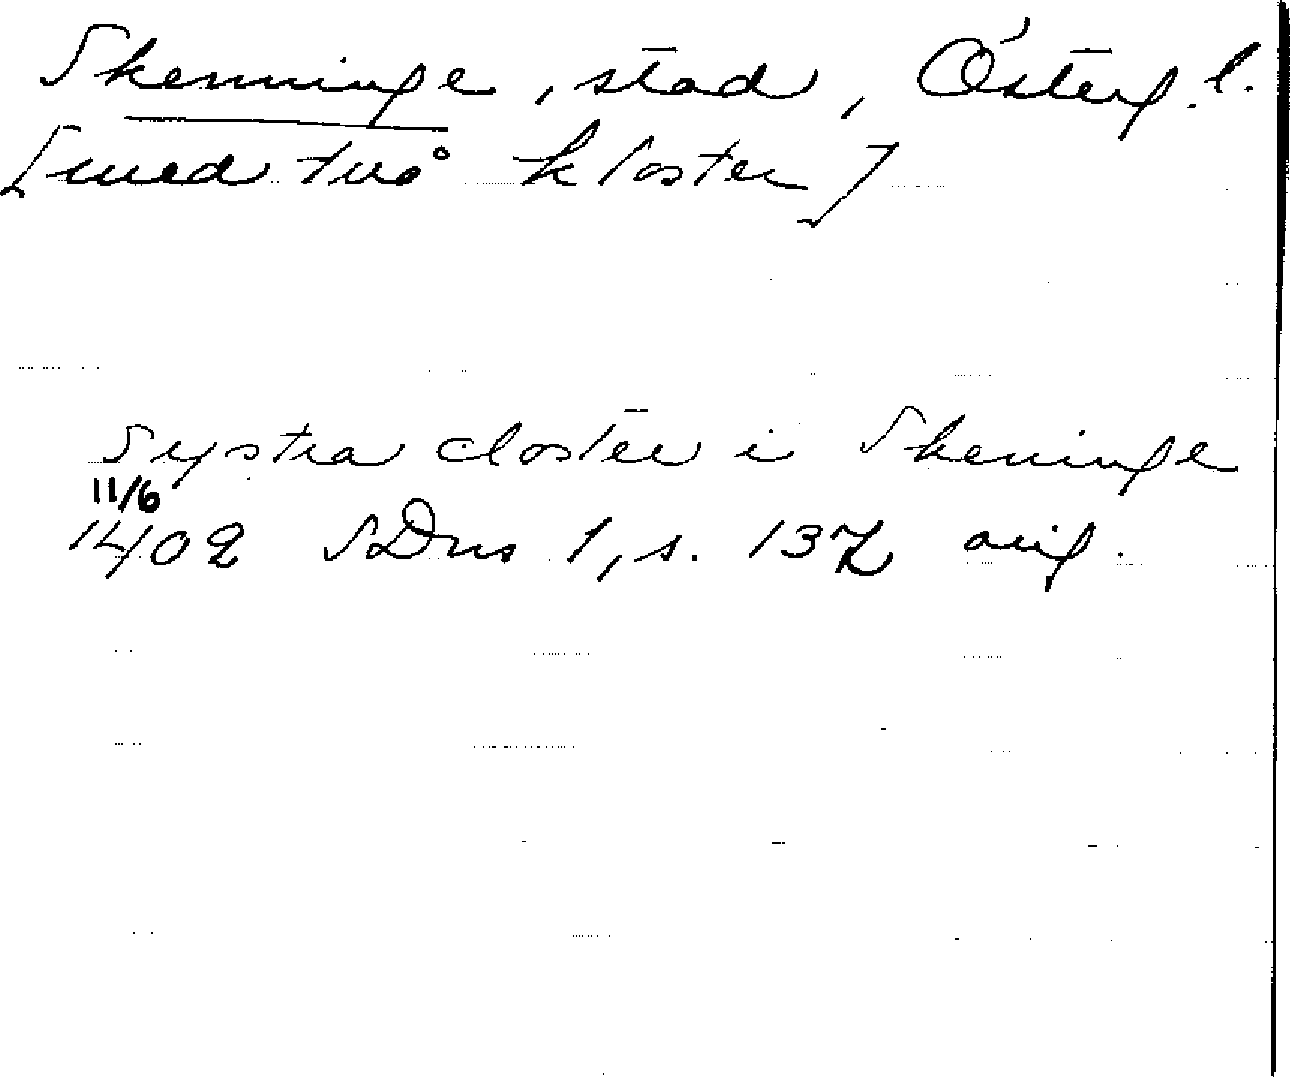 Skenninge, stad, Österg.l.
[med två kloster]
Systra closter i Skeninge
11/6
1402 SDns 1, s. 137 orig.